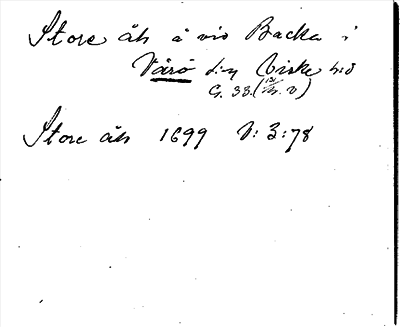 Store åh å vid Backa i
Värö s:n Viske hd
G. 33. (
Store åh 1699 V: 3: 78